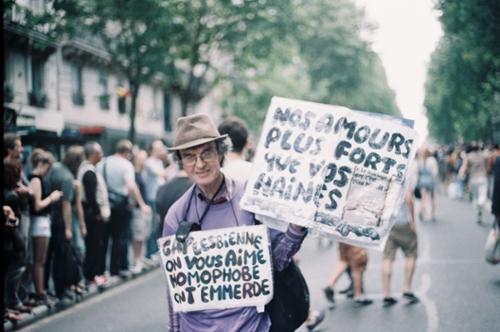 NOS AMOURS
PLUS FORTS
QUE VOS
HAINES
GAY LESBIENNE
ON VOUS AIME
HOMOPHOBE
ONT EMMERDE